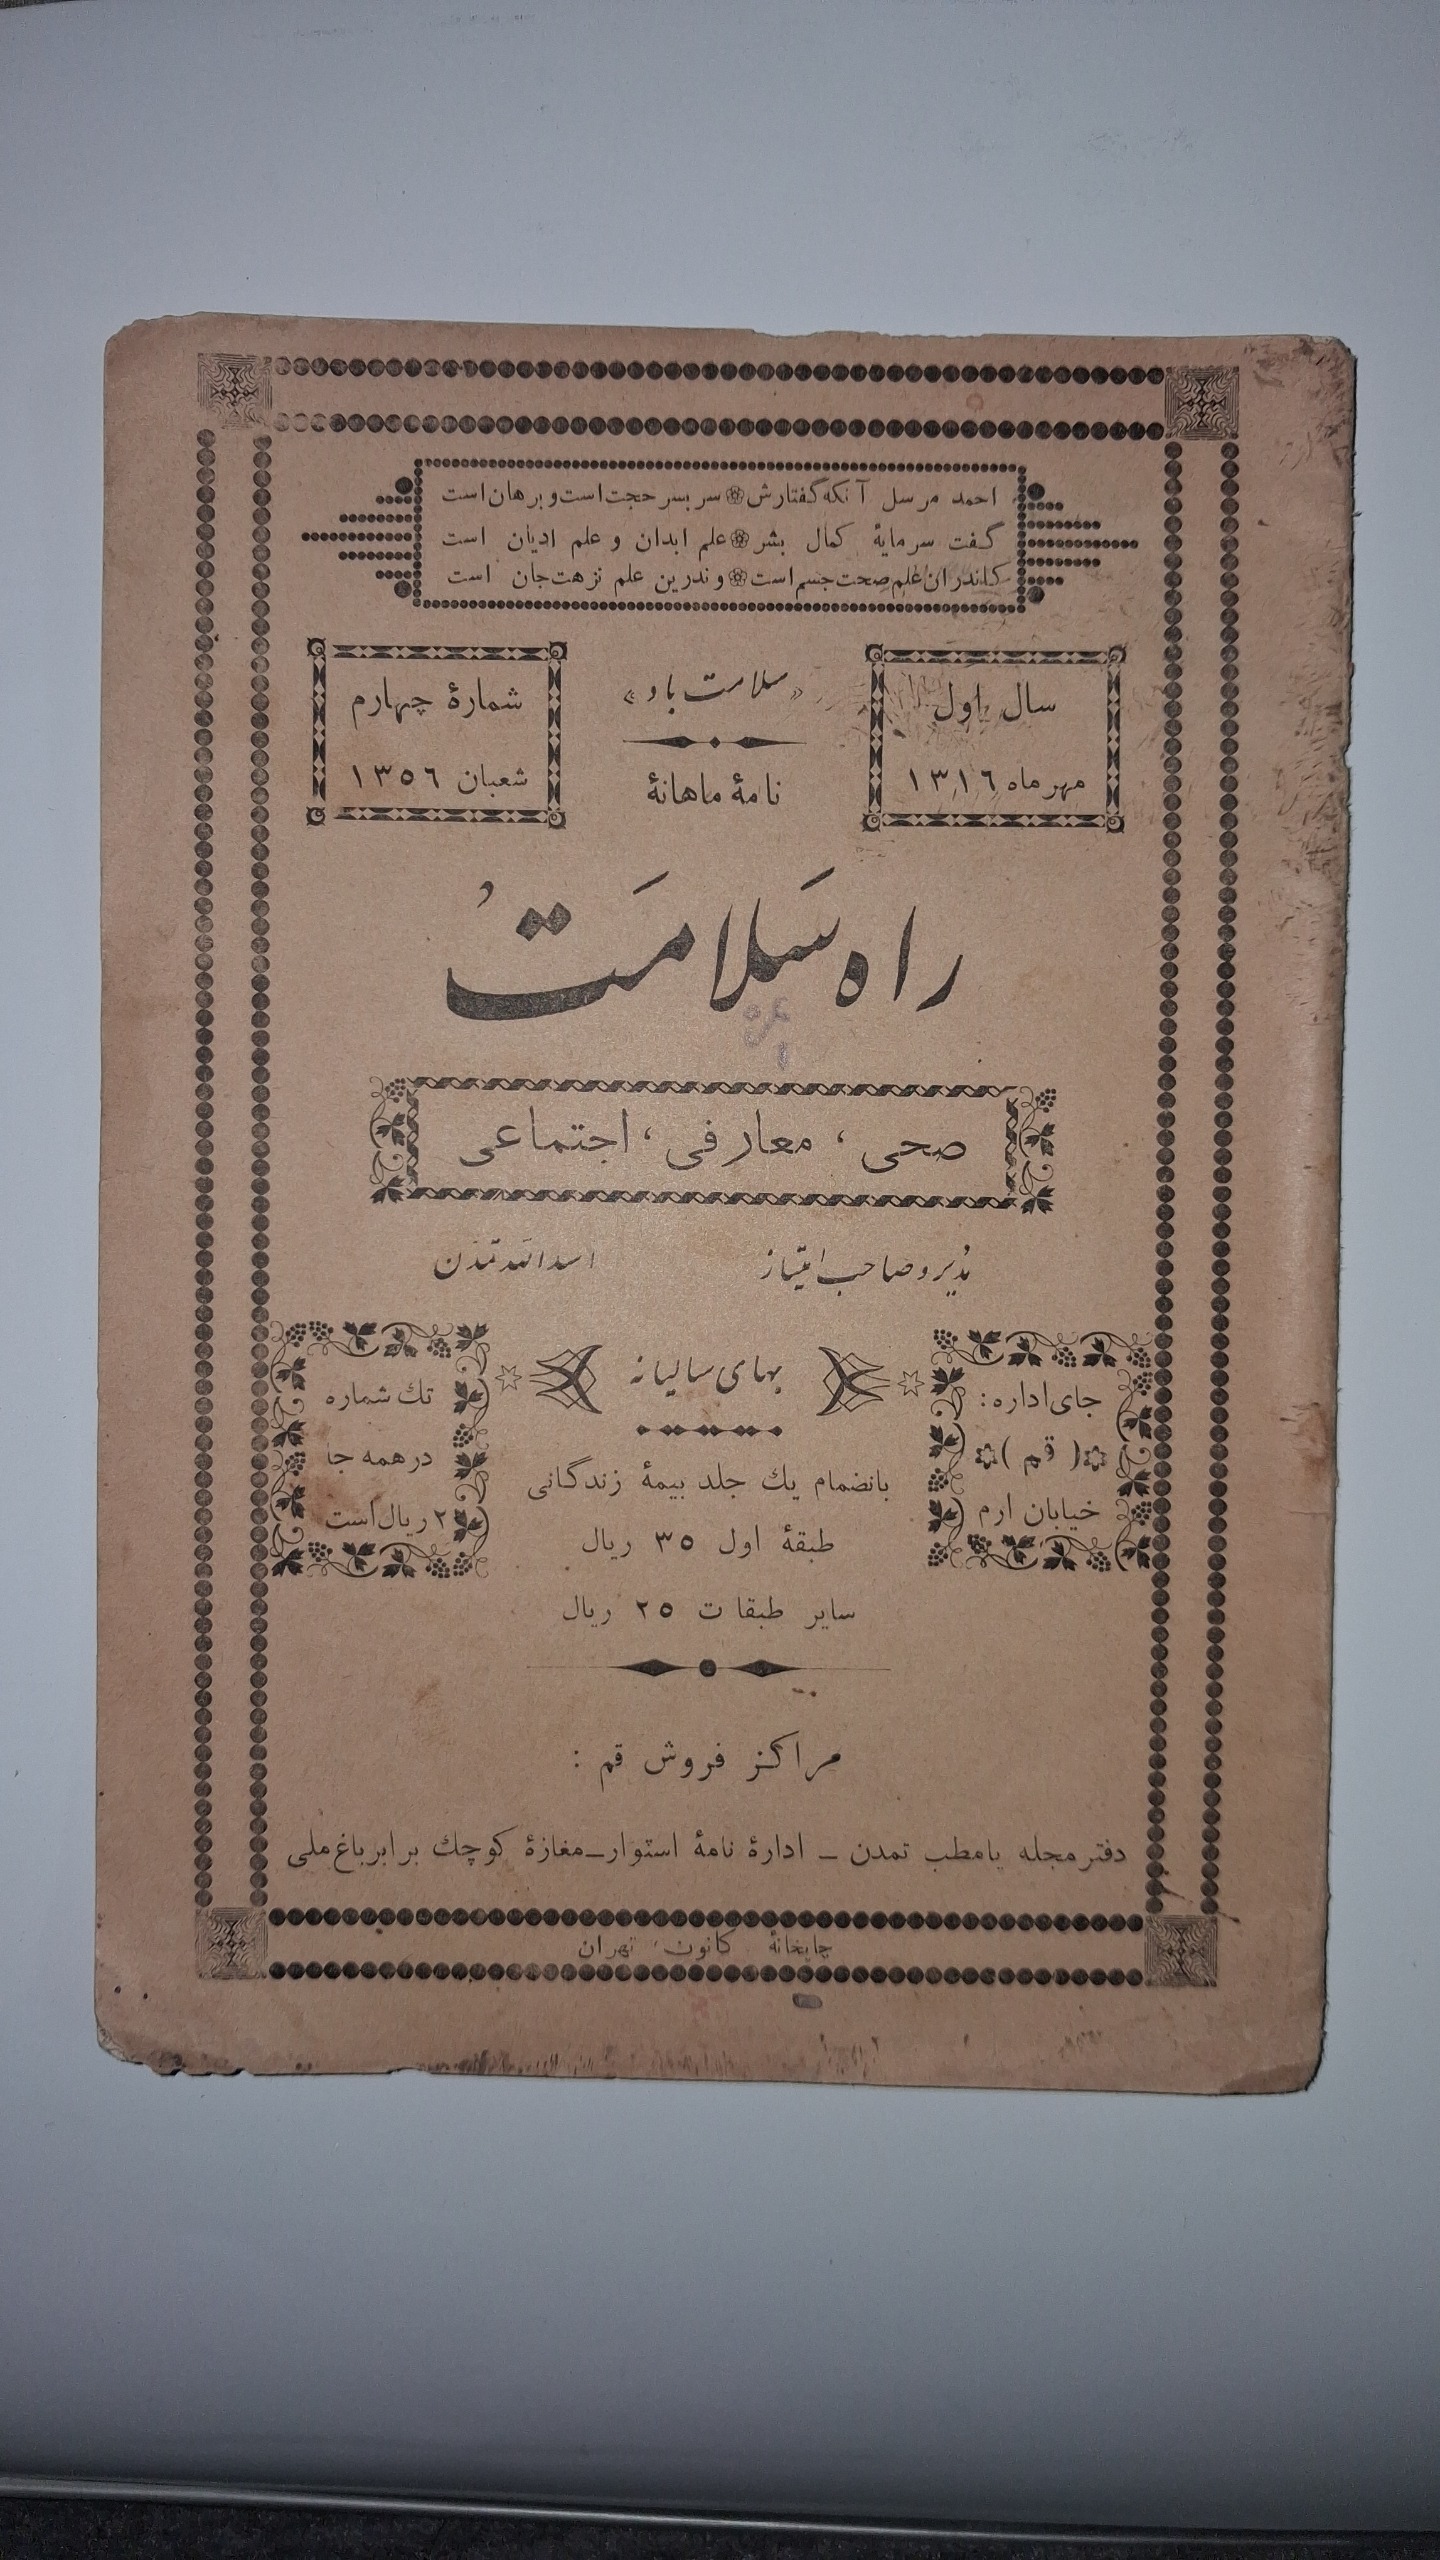 احمد مرسل آنکه گفتارش سر بسر حجت است و برهان است
گفت سرمایهٔ کمال بشر علم ابدان و علم ادیان است
کاندران علم صحت جسم است وندرین علم نزهت جان است
سال اول
مهر ماه ۱۳۱۶
«سلامت باد»
نامهٔ ماهانهٔ
شمارهٔ چهارم
شعبان ۱۳۵۶
راه سَلامَتُ
صحی ، معارفی ، اجتماعی
مُدیر و صاحب امتیاز اسدالله تمدن
جای اداره:
( قم )
خیابان ارم
بهای سالیانه
بانضمام یك جلد بیمهٔ زندگانی
طبقهٔ اول ۳۵ ریال
سایر طبقات ۲۵ ریال
تك شماره
در همه جا
۲ ریال است
مراکز فروش قم :
دفتر مجله یا مطب تمدن ــ ادارهٔ نامهٔ استوار ــ مغازهٔ کوچك برابر باغ ملی
چاپخانهٔ کانون، تهران